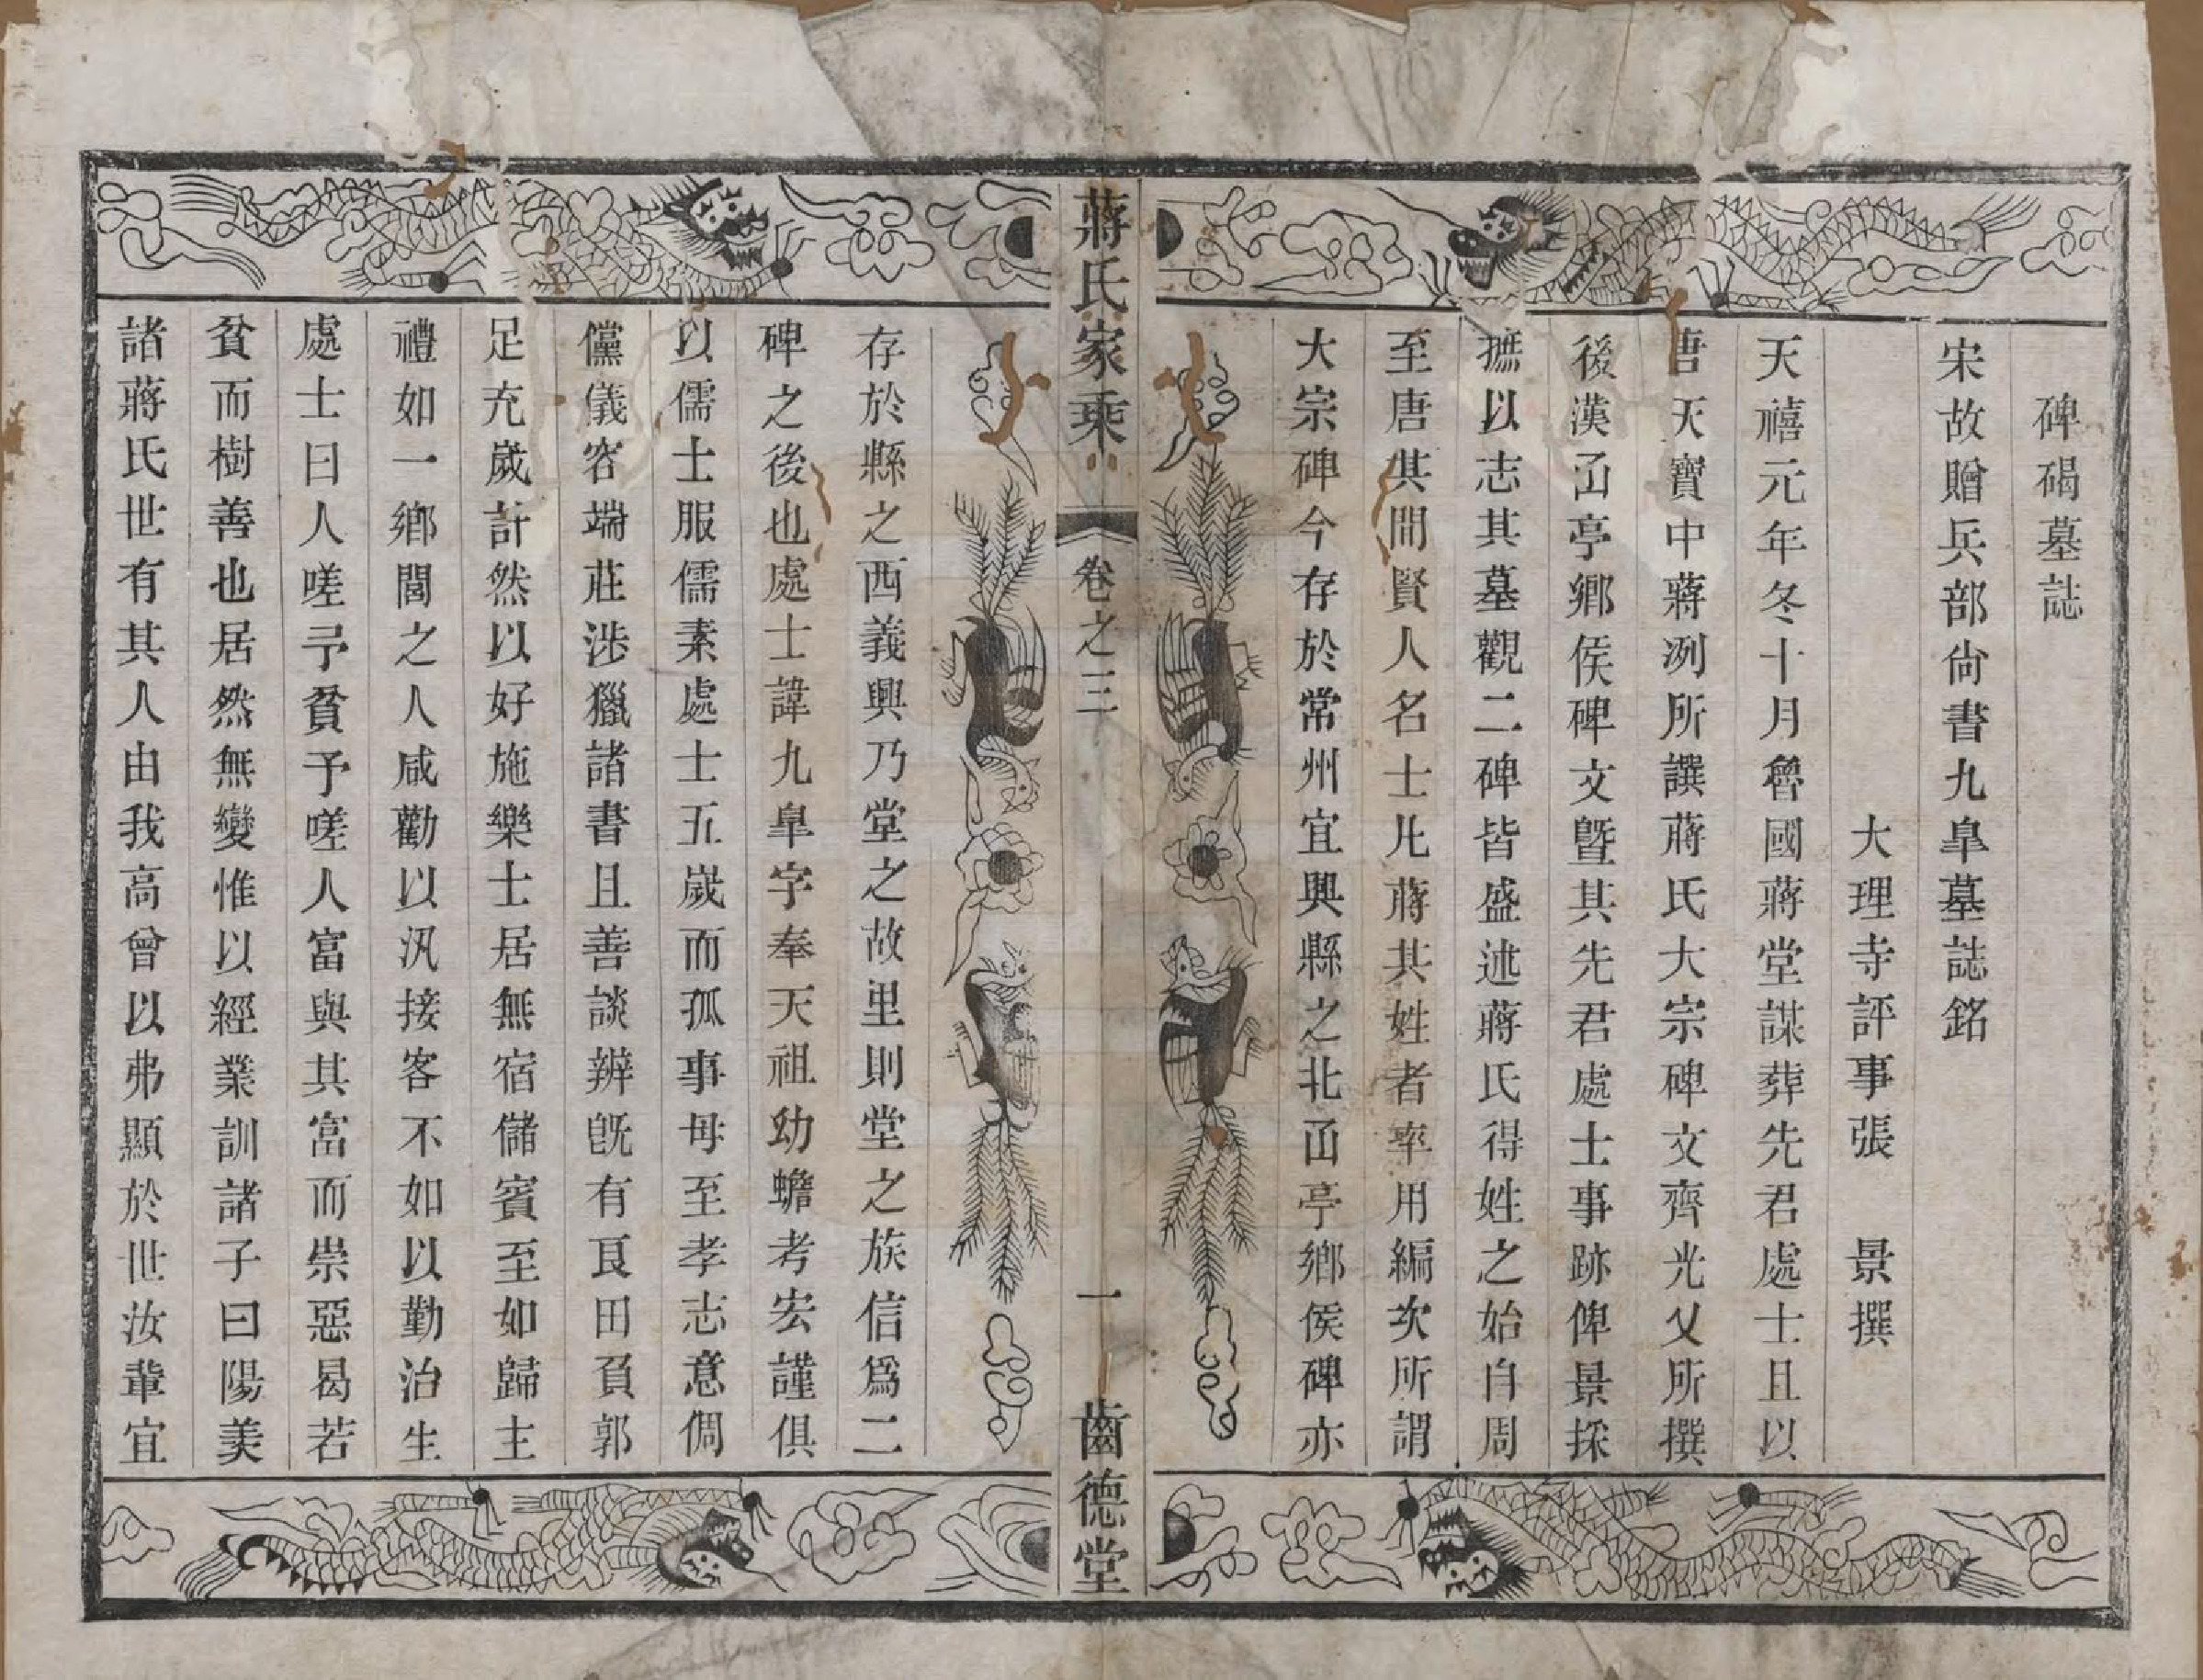 碑碣墓誌
宋故贈兵部尙書九臯墓誌銘
大理寺評事張　景撰
天禧元年冬十月魯國蔣堂謀葬先君處士且以
唐天寶中蔣冽所譔蔣氏大宗碑文齊光乂所撰
後漢𠙽亭鄉侯碑文曁其先君處士事跡俾景採
摭以志其墓觀二碑皆盛述蔣氏得姓之始自周
至唐其間賢人名士凡蔣其姓者率用編次所謂
大宗碑今存於常州宜興縣之北𠙽亭鄉侯碑亦
蔣氏家乘
卷之三
一
齒德堂
存於縣之西義興乃堂之故里則堂之族信爲二
碑之後也處士諱九臯字奉天祖幼蟾考宏謹俱
以儒士服儒素處士五歲而孤事母至孝志意倜
儻儀容端莊涉獵諸書且善談辨旣有良田負郭
足充歲計然以好施樂士居無宿儲賓至如歸主
禮如一鄉閭之人咸勸以汎接客不如以勤治生
處士曰人嗟予貧予嗟人富與其富而崇惡曷若
貧而樹善也居然無變惟以經業訓諸子曰陽羨
諸蔣氏世有其人由我高曾以弗顯於世汝輩宜